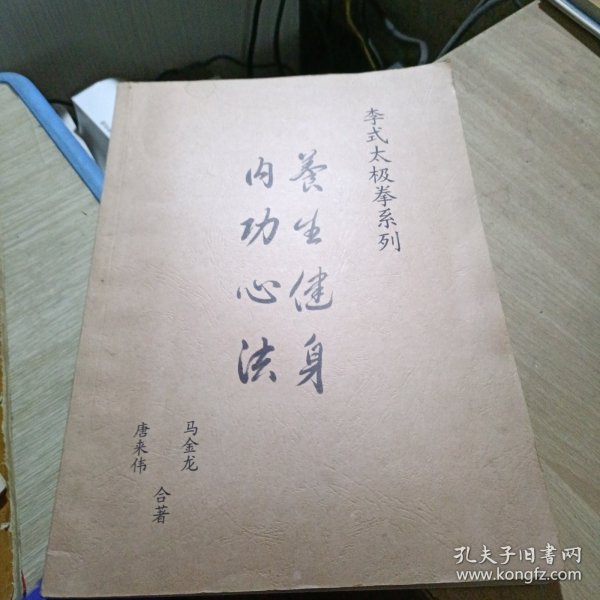 李式太极拳系列
養生健身
内功心法
马金龙
唐来伟
合著
孔夫子旧書网
www.kongfz.com